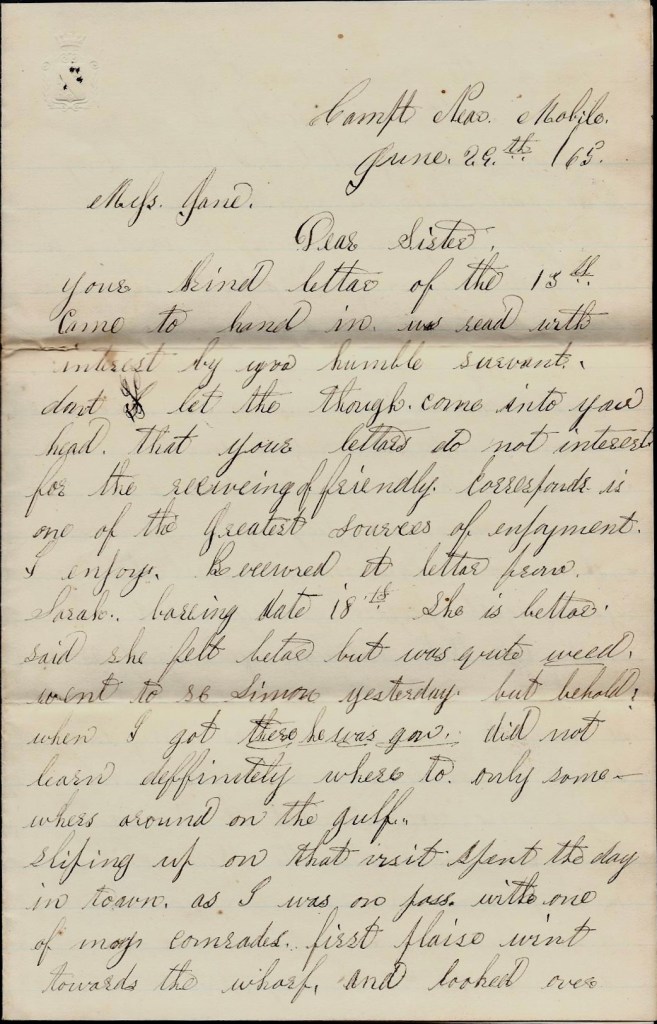 Camp Near Mobile.
June. 29.th /65.
Miss. Jane.
Dear Sister.
your kind letter of the 13th.
Came to hand in. was read with
interest by your humble survant.
dont let the though. come into your
head. that your letters do not interest
for the receiveing of friendly. Corresponds is
one of the Greatest sources of enjoyment.
I enjoy. Receeived a letter from.
Sarah.. bareing date 18th She is better.
said she felt better but was quite weed.
went to se Simon yesterday. but behold?
when I got there he was gon. did not
learn deffinitely where to. only some-
whers around on the gulf..
Sliping up on that visit Spent the day
in town. as I was on pass. with one
of my comrades. first plaise wint
towards the wharf, and looked over